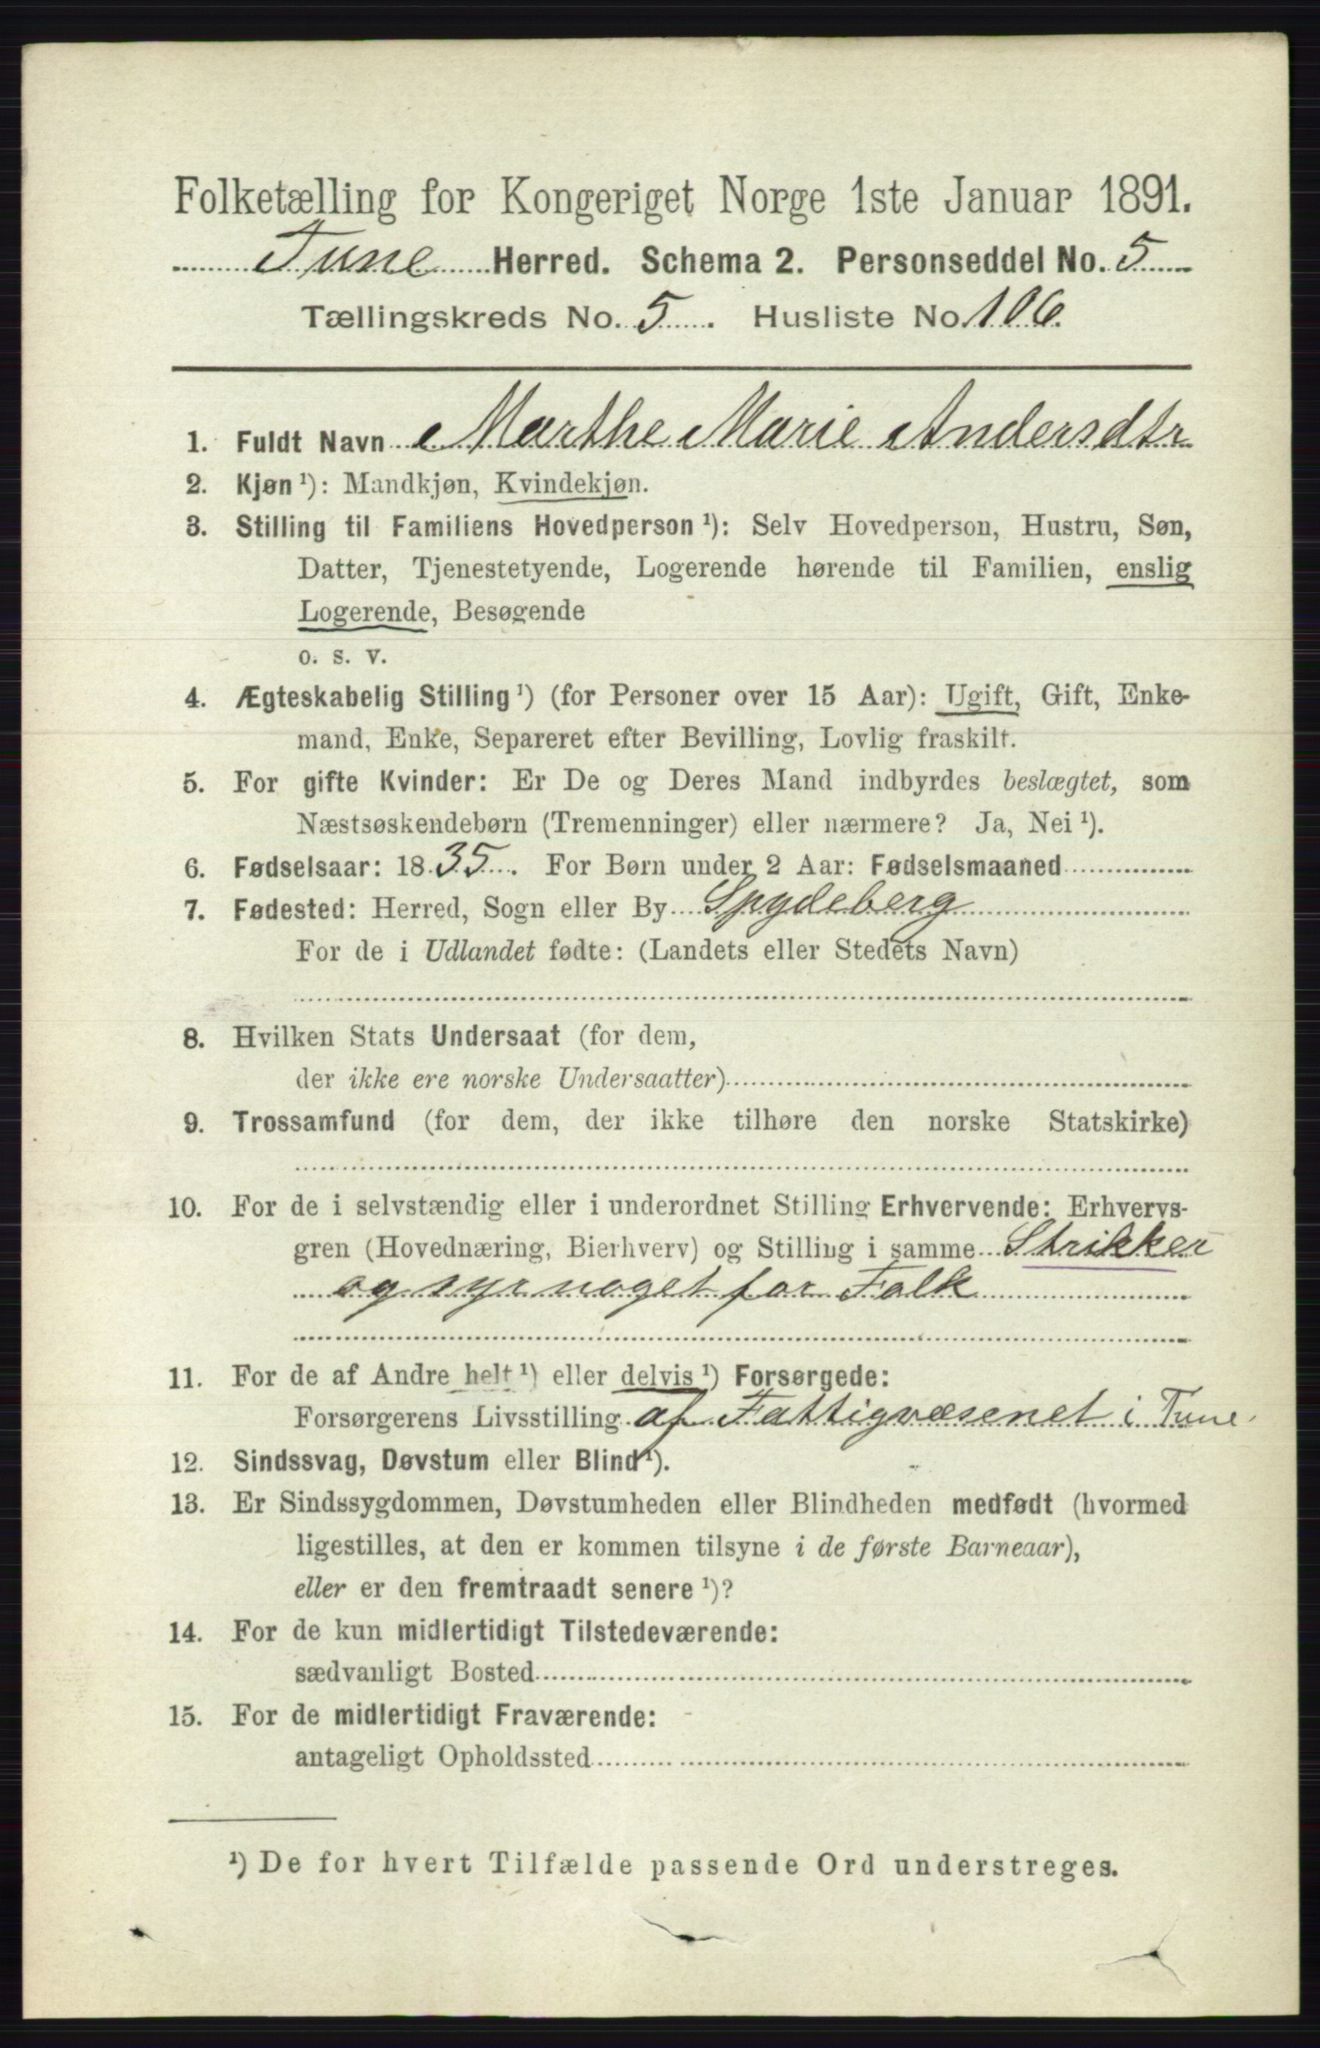 Folketælling for Kongeriget Norge 1ste Januar 1891.
Tune Herred. Schema 2. Personseddel No. 5
Tællingskreds No. 5. Husliste No. 106.
1. Fuldt Navn Marthe Marie Andersdtr
2. Kjøn ¹): Mandkjøn, Kvindekjøn.
3. Stilling til Familiens Hovedperson ¹): Selv Hovedperson, Hustru, Søn,
Datter, Tjenestetyende, Logerende hørende til Familien, enslig
Logerende, Besøgende
o. s. v.
4. Ægteskabelig Stilling ¹) (for Personer over 15 Aar): Ugift, Gift, Enke-
mand, Enke, Separeret efter Bevilling, Lovlig fraskilt.
5. For gifte Kvinder: Er De og Deres Mand indbyrdes beslægtet, som
Næstsøskendebørn (Tremenninger) eller nærmere? Ja, Nei ¹).
6. Fødselsaar: 1835. For Børn under 2 Aar: Fødselsmaaned
7. Fødested: Herred, Sogn eller By Spydeberg
For de i Udlandet fødte: (Landets eller Stedets Navn)
8. Hvilken Stats Undersaat (for dem,
der ikke ere norske Undersaatter)
9. Trossamfund (for dem, der ikke tilhøre den norske Statskirke)
10. For de i selvstændig eller i underordnet Stilling Erhvervende: Erhvervs-
gren (Hovednæring, Bierhverv) og Stilling i samme Strikker
og syr noget for Folk
11. For de af Andre helt ¹) eller delvis ¹) Forsørgede:
Forsørgerens Livsstilling af Fattigvæsenet i Tune.
12. Sindssvag, Døvstum eller Blind ¹).
13. Er Sindssygdommen, Døvstumheden eller Blindheden medfødt (hvormed
ligestilles, at den er kommen tilsyne i de første Barneaar),
eller er den fremtraadt senere ¹)?
14. For de kun midlertidigt Tilstedeværende:
sædvanligt Bosted
15. For de midlertidigt Fraværende:
antageligt Opholdssted
¹) De for hvert Tilfælde passende Ord understreges.